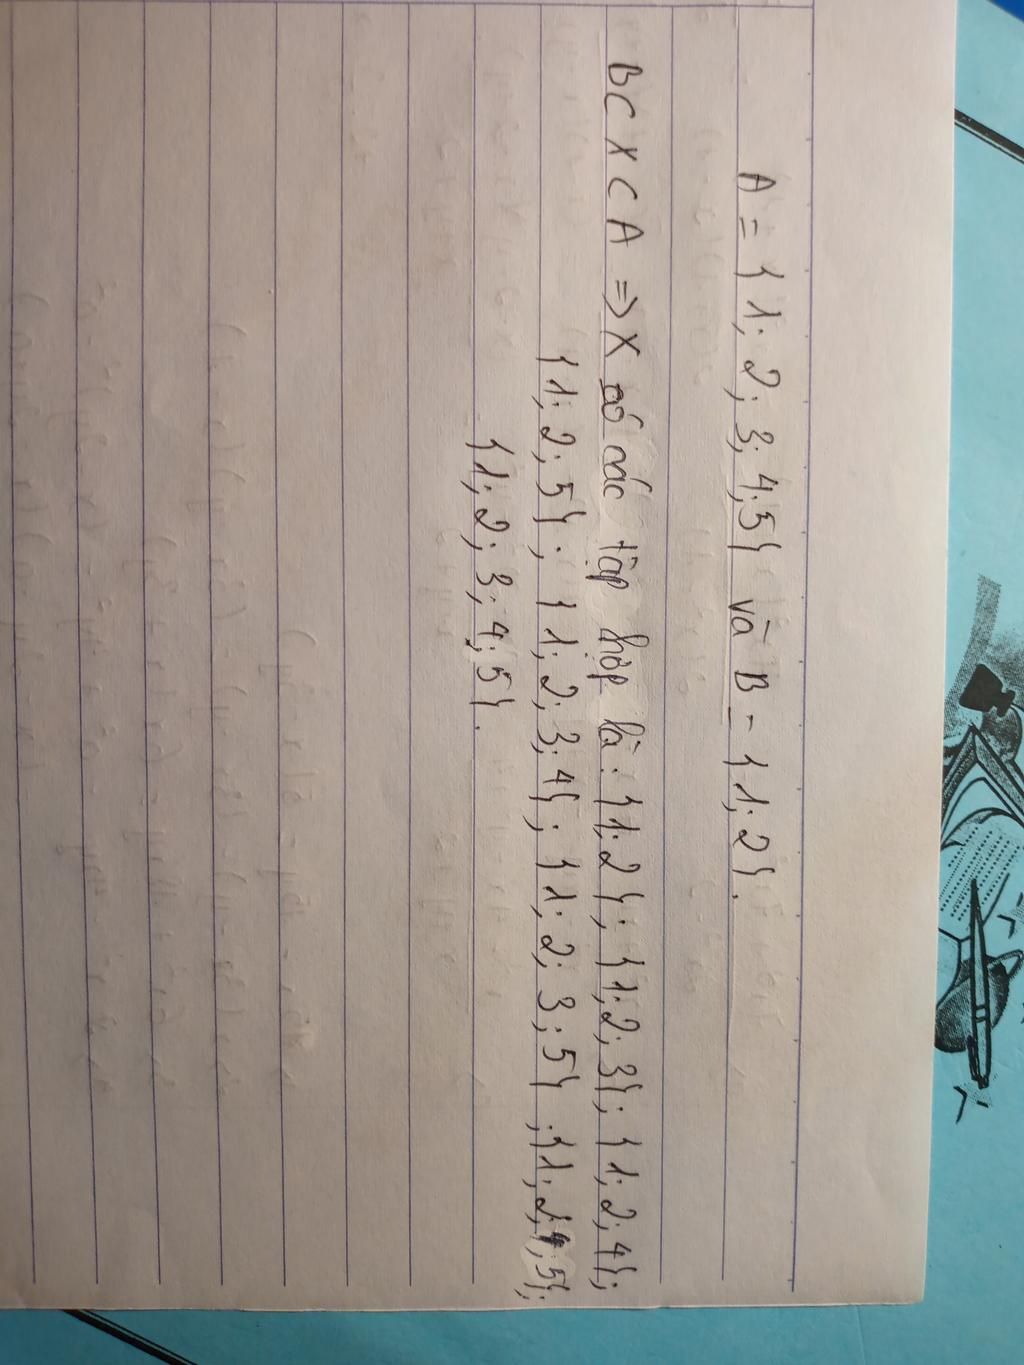 A = {1; 2; 3; 4; 5} và B = {1; 2}.
B ⊂ X ⊂ A => X có các tập hợp là: {1; 2}; {1; 2; 3}; {1; 2; 4};
{1; 2; 5}; {1; 2; 3; 4}; {1; 2; 3; 5}; {1; 2; 4; 5};
{1; 2; 3; 4; 5}.